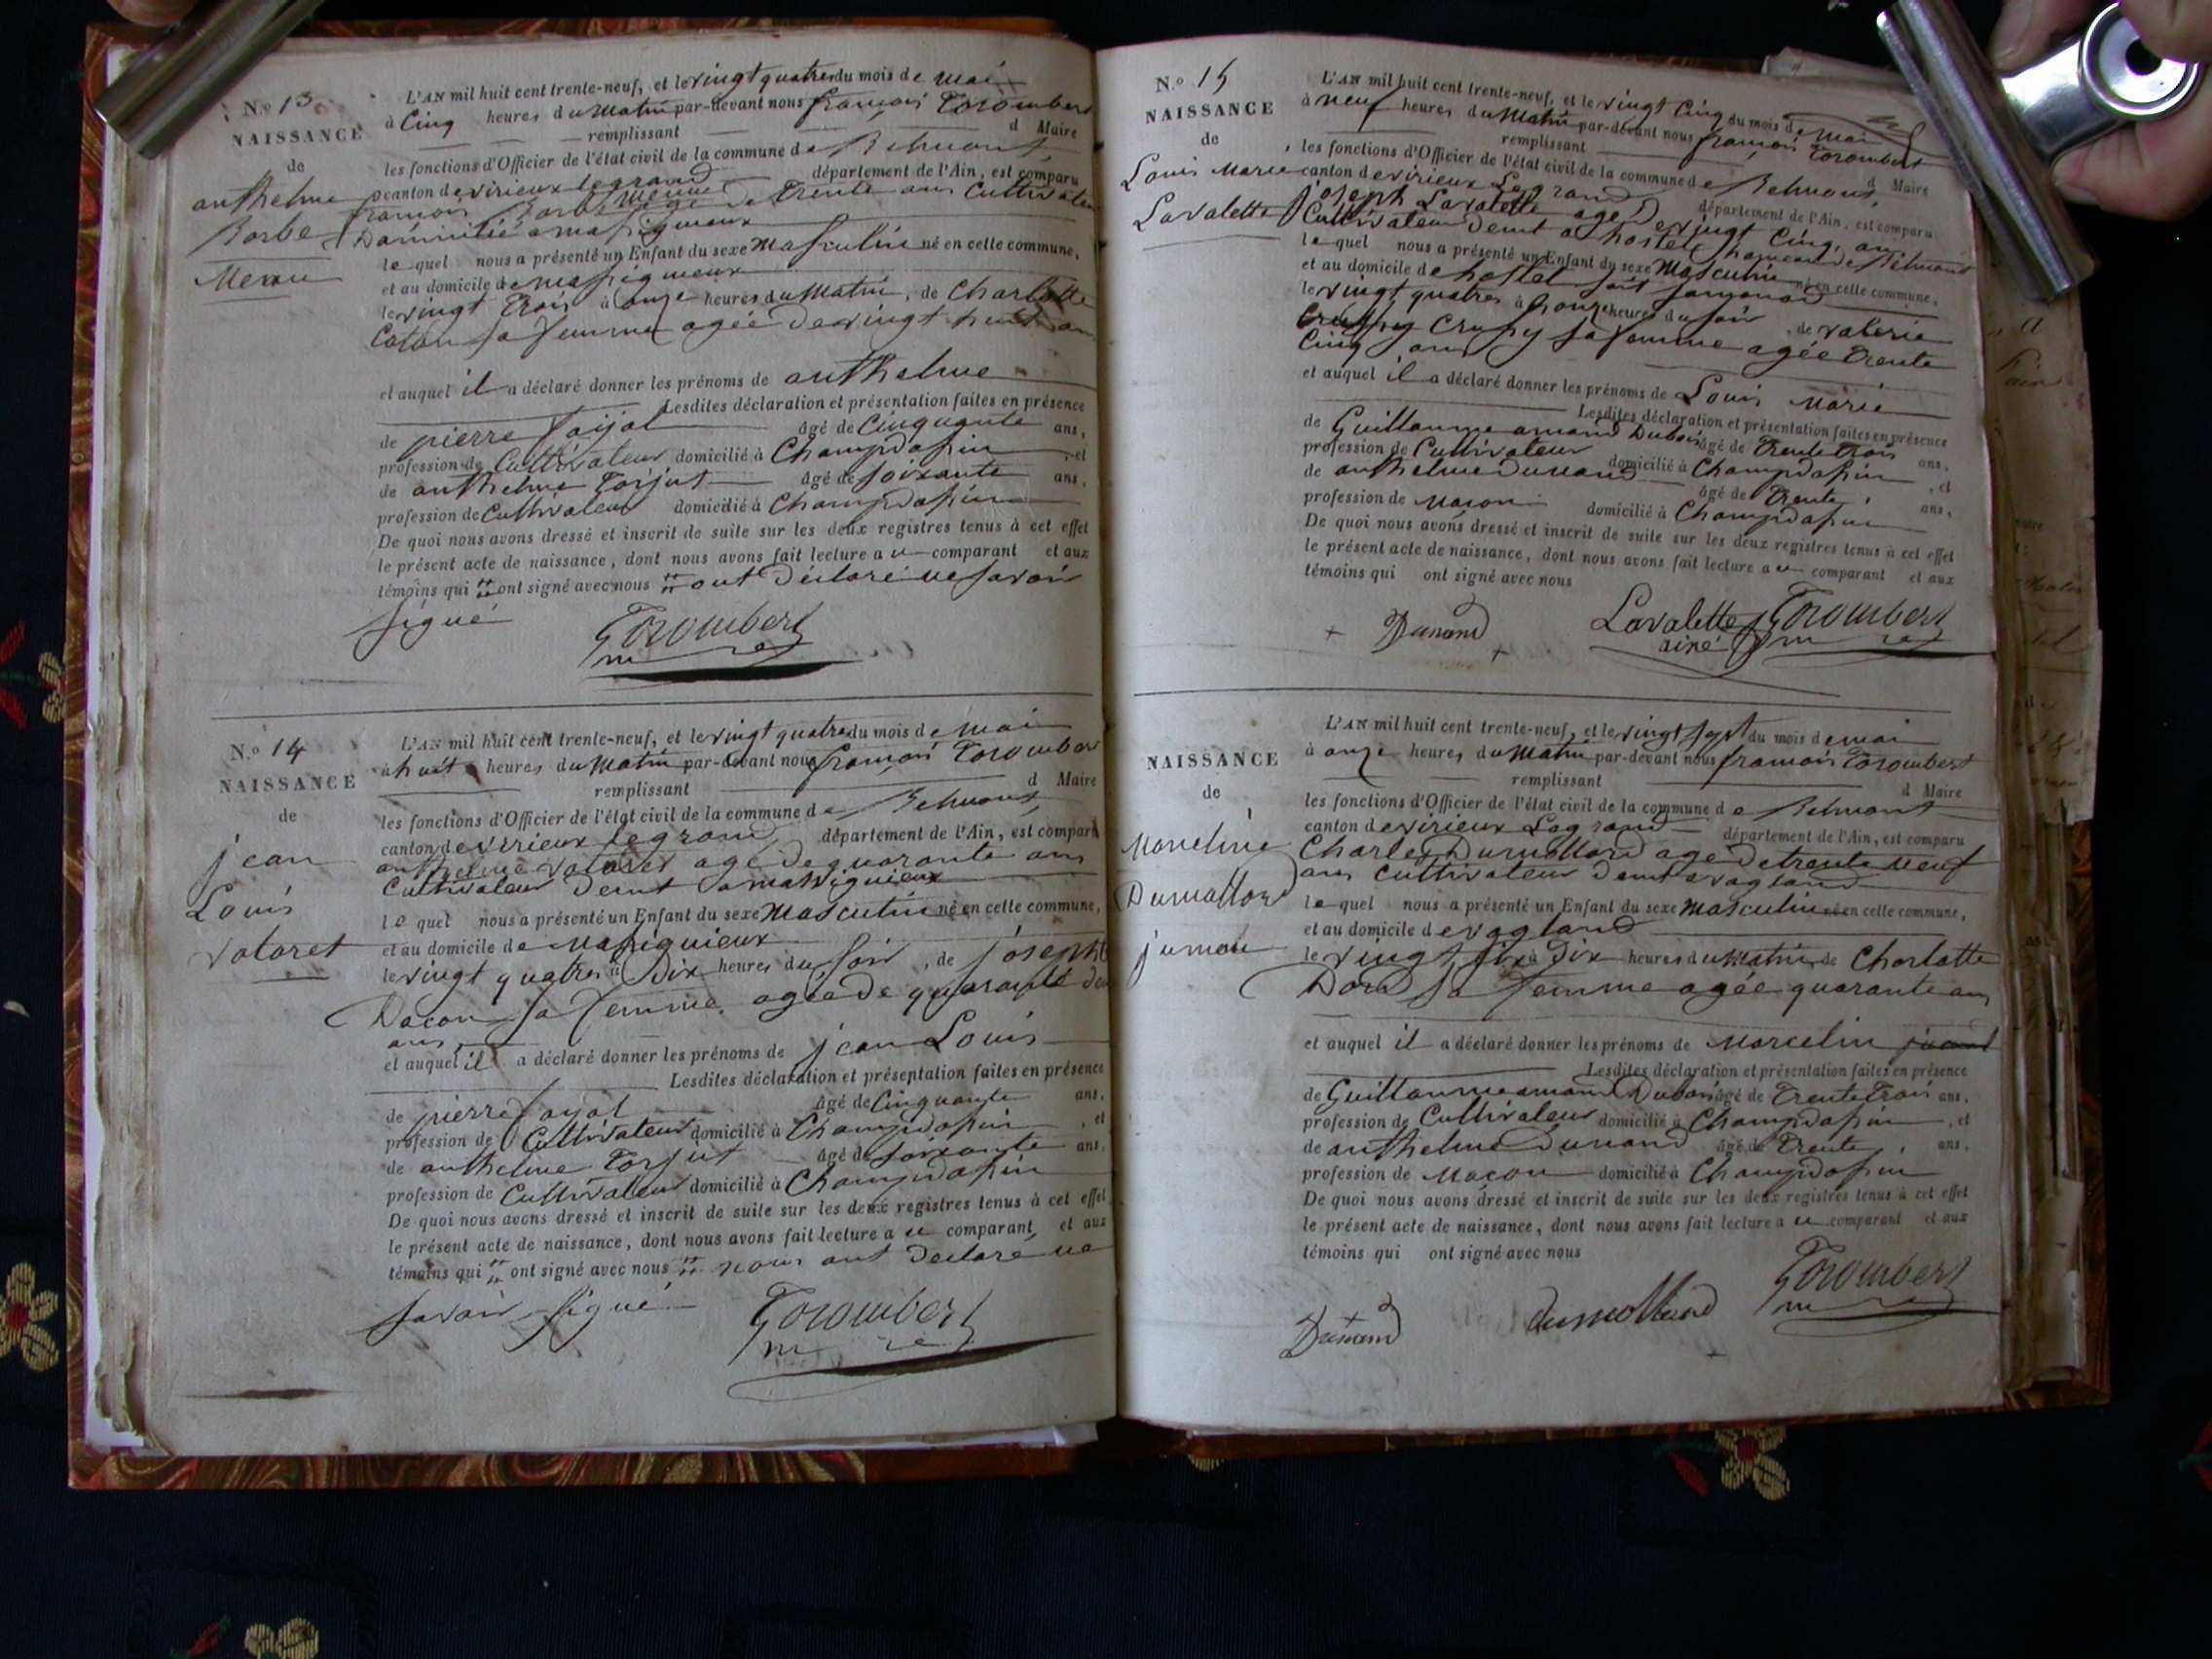 N.º 13
NAISSANCE
de
anthelme
Barbe
Menu
L'AN mil huit cent trente-neuf, et le vingt quatre du mois de mai
à Cinq heures du Matin par-devant nous françois Trombert
remplissant d Maire
les fonctions d'Officier de l'état civil de la commune de Belmont
canton de virieux legrand département de l'Ain, est comparu
françois Barbe agé de trente ans Cultivateur
Domicilié a massigneux
le quel nous a présenté un Enfant du sexe Masculin né en cette commune,
et au domicile de massigneux
le vingt trois à onze heures du Matin, de Charlotte
Cotton sa femme agée de vingt huit ans
et auquel il a déclaré donner les prénoms de anthelme
Lesdites déclaration et présentation faites en présence
de pierre fayol âgé de Cinquante ans,
profession de Cultivateur domicilié à Champdossin, et
de anthelme Torjut âgé de soixante ans,
profession de Cultivateur domicilié à Champdossin
De quoi nous avons dressé et inscrit de suite sur les deux registres tenus à cet effet
le présent acte de naissance, dont nous avons fait lecture au comparant et aux
témoins qui ont signé avec nous ont déclaré ne savoir
signé
Trombert
N.º 14
NAISSANCE
de
jean
Louis
Valoret
L'AN mil huit cent trente-neuf, et le vingt quatre du mois de mai
à huit heures du Matin par-devant nous françois Trombert
remplissant d Maire
les fonctions d'Officier de l'état civil de la commune de Belmont
canton de virieux legrand, département de l'Ain, est comparu
anthelme Valoret agé de quarante ans
Cultivateur demt a massigneux
le quel nous a présenté un Enfant du sexe Masculin né en cette commune,
et au domicile de Massigneux
le vingt quatre à Dix heures du soir, de josephte
Dacon sa femme agée de quarante
ans
et auquel il a déclaré donner les prénoms de jean Louis
Lesdites déclaration et présentation faites en présence
de pierre fayol âgé de Cinquante ans,
profession de Cultivateur domicilié à Champdossin, et
de anthelme Torjut âgé de soixante ans,
profession de Cultivateur domicilié à Champdossin
De quoi nous avons dressé et inscrit de suite sur les deux registres tenus à cet effet
le présent acte de naissance, dont nous avons fait lecture au comparant, et aux
témoins qui ont signé avec nous nous ont declaré ne
savoir signé
Trombert
N.º 15
NAISSANCE
de
Louis Marie
Lavalette
L'AN mil huit cent trente-neuf, et le vingt Cinq du mois de mai
à neuf heures du Matin par-devant nous françois Trombert
remplissant d Maire
les fonctions d'Officier de l'état civil de la commune de Belmont,
canton de virieux Legrand département de l'Ain, est comparu
joseph Lavalette agé de vingt Cinq ans
Cultivateur demt a hostel hameau de Belmont
le quel nous a présenté un Enfant du sexe Masculin né en cette commune,
et au domicile de hostel
le vingt quatre à honze heures du soir, de valerie
Crussy sa femme agée trente
Cinq ans
et auquel il a déclaré donner les prénoms de Louis Marie
Lesdites déclaration et présentation faites en présence
de Guillaume amand Dubois âgé de trente trois ans,
profession de Cultivateur domicilié à Champdossin, et
de anthelme Dunand âgé de Trente, ans,
profession de Macon domicilié à Champdossin
De quoi nous avons dressé et inscrit de suite sur les deux registres tenus à cet effet
le présent acte de naissance, dont nous avons fait lecture au comparant et aux
témoins qui ont signé avec nous
Dunand Lavalette Trombert
ainé
NAISSANCE
de
Marcelin
Dumollard
L'AN mil huit cent trente-neuf, et le vingt sept du mois de mai
à onze heures du Matin par-devant nous françois Trombert
remplissant d Maire
les fonctions d'Officier de l'état civil de la commune de Belmont
canton de virieux Legrand département de l'Ain, est comparu
Charles Dumollard agé de trente neuf
ans Cultivateur demt a vogland
le quel nous a présenté un Enfant du sexe Masculin né en cette commune,
et au domicile de vogland
le vingt six à Dix heures du Matin de Charlotte
sa femme agée quarante ans
et auquel il a déclaré donner les prénoms de Marcelin
Lesdites déclaration et présentation faites en présence
de Guillaume amand Dubois âgé de Trente trois ans,
profession de Cultivateur domicilié à Champdossin, et
de anthelme Dunand âgé de Trente, ans,
profession de Macon domicilié à Champdossin
De quoi nous avons dressé et inscrit de suite sur les deux registres tenus à cet effet
le présent acte de naissance, dont nous avons fait lecture au comparant et aux
témoins qui ont signé avec nous
Dunand dumollard Trombert